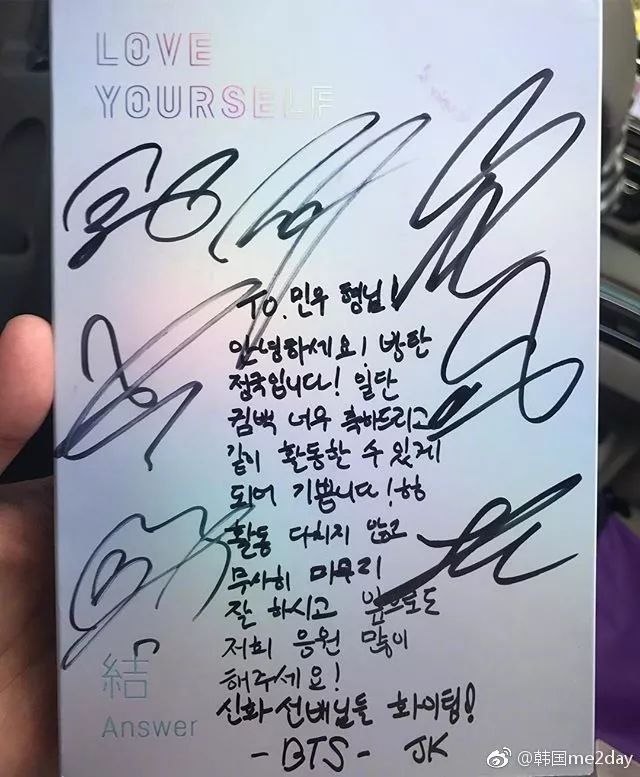 LOVE
YOURSELF
To. 민우 형님!
안녕하세요! 방탄
정국입니다! 일단
컴백 너무 축하드리고
같이 활동할 수 있게
되어 기쁩니다! ㅎㅎ
활동 다치지 않고
무사히 마무리
잘 하시고 앞으로도
저희 응원 많이
해주세요!
신화 선배님들 화이팅!
- BTS - JK
結
Answer
@韩国me2day